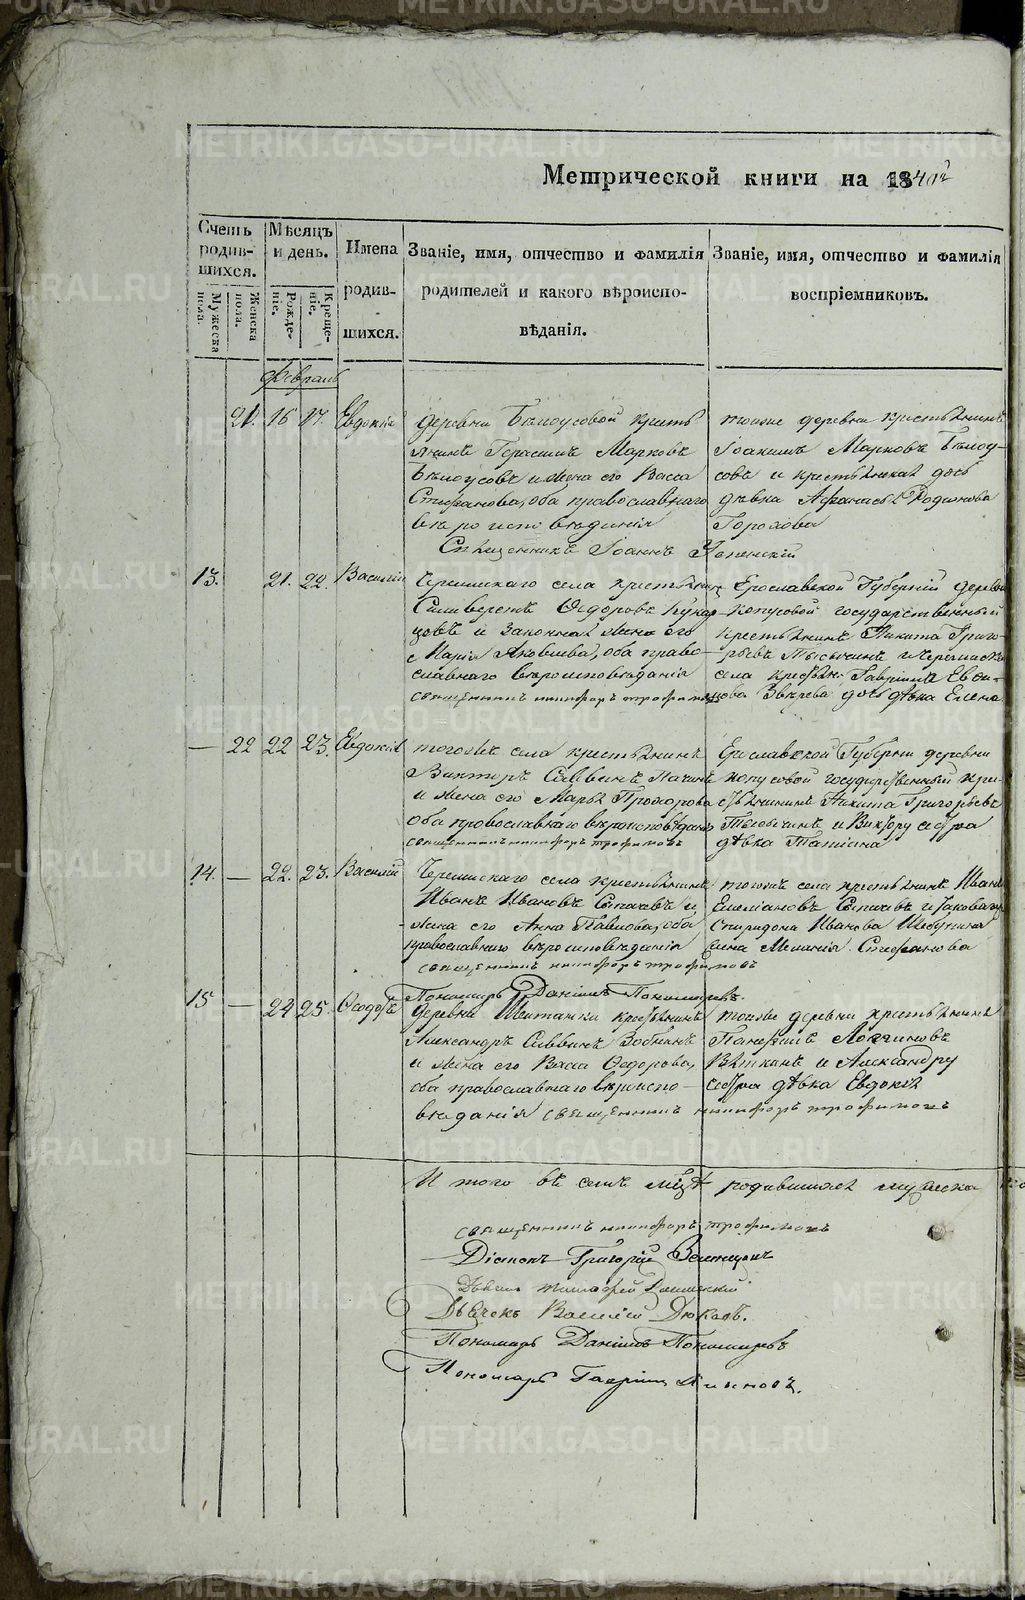 Метрической книги на 1840й
Счетъ родившихся.
Мужеска пола.
Женска пола.
Мѣсяцъ и день.
Рожденіе.
Крещеніе.
Имена родившихся.
Званіе, имя, отчество и фамилія
родителей и какого вѣроиспо-
вѣданія.
Званіе, имя, отчество и фамилія
воспріемниковъ.
Февраль
21. 16 17. Евдокія
деревни Бѣлоусовой кресть
янинъ Герасимъ Марковъ
Бѣлоусовъ и жена его Васса
Стефанова, оба православнаго
вѣроисповѣданія
Священникъ Іоаннъ Успенскій
тоіже деревни крестьянинъ
Іоакимъ Марковъ Бѣлоу-
совъ и крестьянская дочь
дѣвка Афанасья Родионова
Горохова
13. 21. 22. Василій
села крестьянинъ
Силиверстъ Ѳедоровъ
цовъ и законная жена его
Марія Яковлева, оба право-
славнаго вѣроисповѣданія
священникъ никифоръ трофимовъ
Ерославской Губерніи деревни
Копусовой государственный
крестьянинъ Никита Григо-
рьевъ и
села Гавріила
Звѣрева дочь дѣвка Елена
— 22 22 23. Евдокія
тогожъ села крестьянинъ
Викторъ Саввинъ
и жена его Марья Прохорова
оба православнаго вѣроисповѣданія
священникъ никифоръ трофимовъ
Ерославской Губерни деревни
Копусовой государственный кре-
стьянинъ Никита Григорьевъ
и Виктору сестра
дѣвка Татіана
14. — 22. 23. Василій
села крестьянинъ
Иванъ Ивановъ и
жена его Анна Павлова, оба
православнаго вѣроисповѣданія
священникъ никифоръ трофимовъ
Пономарь Даніилъ Пономаревъ.
тогожъ села крестьянинъ Иванъ
Емеліановъ и
Спиридона Иванова
Меланія Стефанова
15 — 24 25. Ѳеодоръ
деревни Шайтанки крестьянинъ
Александръ Саввинъ
и жена его Васса Ѳедорова,
оба православнаго вѣроиспо-
вѣданія священникъ никифоръ трофимовъ
тоіже деревни крестьянинъ
Логиновъ
и Александру
сестра дѣвка Евдокія
И того въ семъ мцѣ родившихся мужеска
священникъ никифоръ трофимовъ
Діаконъ Григорій
Дьячекъ Василій Дюковъ.
Пономарь Даніилъ Пономаревъ
Пономарь Гавріилъ
METRIKI.GASO-URAL.RU